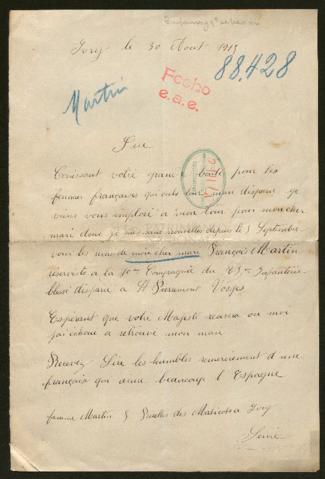 Ivry le 30 Aout 1915
88.428
Martin
Fecho
e.a.e.
Sire
Conaissant votre grand bonté pour les
femmes françaises qui ont leur mari disparu je
viens vous emploré a mon tour pour mon cher
mari dont je suis sans nouvelles depuis le 1 Septembre
voici les nom de mon cher mari François Martin
réserviste a la 10me Compagnie du 63me Infanterie
blessé disparu a St Pierremont Vosges
Espérant que votre Majesté reussira ou moi
j'ai échoué a retrouvé mon mari
Recevez Sire les humbles remerciement d'une
française qui aime beaucoup l'Espagne
femme Martin 5 des Ivry
Seine